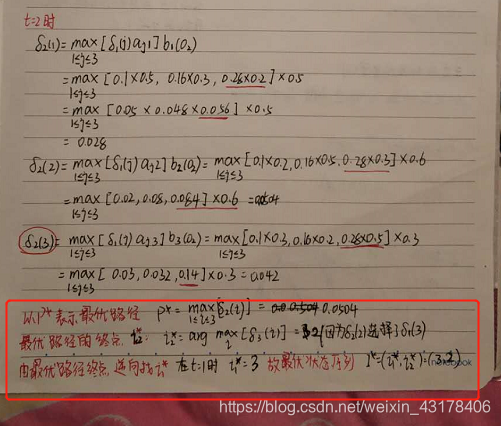 t=2时
δ₂(1)= max [δ₁(j) aⱼ₁] b₁(O₂)
1≤j≤3
= max [0.1×0.5, 0.16×0.3, 0.28×0.2]×0.5
1≤j≤3
= max [0.05 × 0.048 × 0.056] × 0.5
1≤j≤3
= 0.028
δ₂(2)= max [δ₁(j) aⱼ₂] b₂(O₂) = max [0.1×0.2, 0.16×0.5, 0.28×0.3]×0.6
1≤j≤3 1≤j≤3
= max [0.02, 0.08, 0.084]×0.6 = 0.0504
1≤j≤3
δ₂(3)= max [δ₁(j) aⱼ₃] b₃(O₂) = max [0.1×0.3, 0.16×0.2, 0.28×0.5]×0.3
1≤j≤3 1≤j≤3
= max [0.03, 0.032, 0.14]×0.3=0.042
1≤j≤3
以P*表示最优路径 P*= max [δ₂(i)] = 0.0504
1≤i≤3
最优路径的终点 i₂*= arg max [δ₃(i)] = 2 (因为δ₂(2)选择了δ₁(3)
由最优路径终点 逆向找i₁* 在t=1时 i₁*=3 故最优状态序列 I*=(i₁*,i₂*)=(3,2)
notebook
https://blog.csdn.net/weixin_43178406